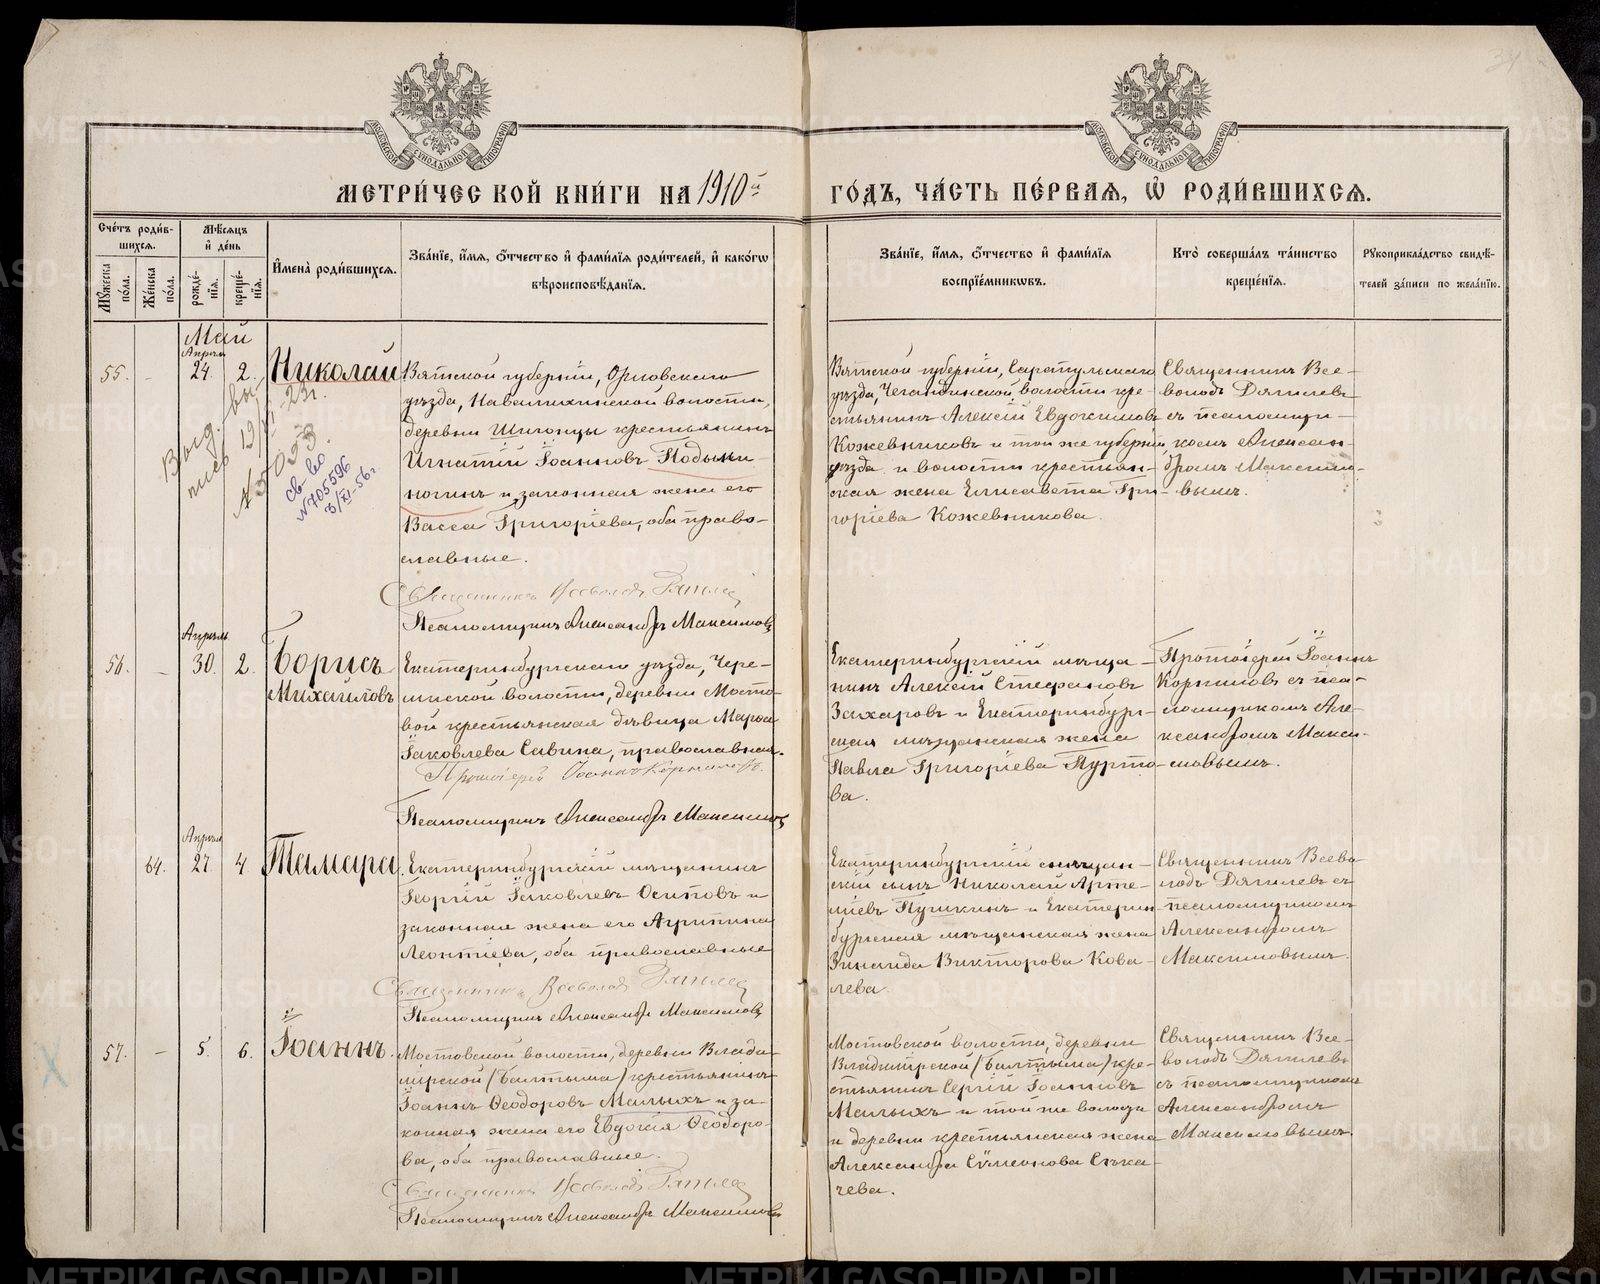 МЕТРИ́ЧЕСКОЙ КНИ́ГИ НА 1910й
ГО́ДЪ, ЧА́СТЬ ПЕ́РВАЯ, Ѡ҆ РОДИ́ВШИХСЯ.
МОСКОВСКОЙ СѴНОДАЛЬНОЙ ТИПОГРАФІИ
МОСКОВСКОЙ СѴНОДАЛЬНОЙ ТИПОГРАФІИ
Сче́тъ роди́в-
шихся.
Мѣсяцъ
и҆ де́нь
Мꙋ́жеска по́ла.
Же́нска по́ла.
рожде́-
нїя.
креще́-
нїя.
И҆мена̀ роди́вшихся.
Зва́нїе, и҆́мя, ѻ҆́тчество и҆ фами́лїя роди́телей, и҆ како́гѡ
вѣроисповѣ́данїя.
Зва́нїе, и҆́мя, ѻ҆́тчество и҆ фами́лїя
воспрїе́мникѡвъ.
Кто̀ соверша́лъ та́инство
креще́нїя.
Рꙋкоприкла́дство свидѣ́-
телей за́писи по жела́нїю.
Май
55.
-
Апрѣля
24.
2.
Николай
Вятской губерніи, Орловскаго
уѣзда, Навалихинской волости,
деревни Шигонцы крестьянинъ
Игнатій Іоанновъ Подыни-
ногинъ и законная жена его
Васса Григоріева, оба право-
славные.
Священникъ Всеволодъ Дягилев
Псаломщикъ Александръ Максимовъ
Вятской губерніи, Сарапульскаго
уѣзда, Чегандинской волости кре-
стьянинъ Алексій Евдокимовъ
Кожевниковъ и той же губерніи
уѣзда и волости крестьян-
ская жена Елисавета Гри-
горіева Кожевникова.
Священникъ Все-
володъ Дягилевъ
съ псаломщи-
комъ Алексан-
дромъ Максимо-
вымъ.
Выд. вы-
пись 19/VI-23г.
№ 5093.
св-во
№705596
3/XI-56г.
56.
-
Апрѣля
30.
2.
Борисъ
Михаиловъ
Екатеринбургскаго уѣзда, Чере-
мисской волости, деревни Мосто-
вой крестьянская дѣвица Марѳа
Іаковлева Савина, православная.
Протоіерей Іоаннъ Корниловъ.
Псаломщикъ Александръ Максимовъ
Екатеринбургскій мѣща-
нинъ Алексій Стефановъ
Захаровъ и Екатеринбург-
ская мѣщанская жена
Павла Григоріева Пурто-
ва.
Протоіерей Іоаннъ
Корниловъ съ пса-
ломщикомъ Але-
ксандромъ Макси-
мовымъ.
64.
Апрѣля
27.
4
Тамара.
Екатеринбургскій мѣщанинъ
Георгій Іаковлевъ Осиповъ и
законная жена его Агрипина
Леонтіева, оба православные
Священникъ Всеволодъ Дягилев
Псаломщикъ Александръ Максимовъ
Екатеринбургскій мѣщан-
скій сынъ Николай Арте-
міевъ Пушкинъ и Екатерин-
бургская мѣщанская жена
Зинаида Викторова Кова-
лева.
Священникъ Всево-
лодъ Дягилевъ съ
псаломщикомъ
Александромъ
Максимовымъ.
57.
-
5.
6.
Іоаннъ.
Мостовской волости, деревни Влади-
мірской (Балтыма) крестьянинъ
Іоаннъ Ѳеодоровъ Малыхъ и за-
конная жена его Евдокія Ѳеодоро-
ва, оба православные.
Священникъ Всеволодъ Дягилев
Псаломщикъ Александръ Максимовъ
Мостовской волости, деревни
Владимірской (Балтыма) кре-
стьянинъ Сергій Іоанновъ
Малыхъ и той же волости
и деревни крестьянская жена
Александра Сѵмеонова Сѣка-
чева.
Священникъ Все-
володъ Дягилевъ
съ псаломщикомъ
Александромъ
Максимовымъ.
METRIKI.GASO-URAL.RU